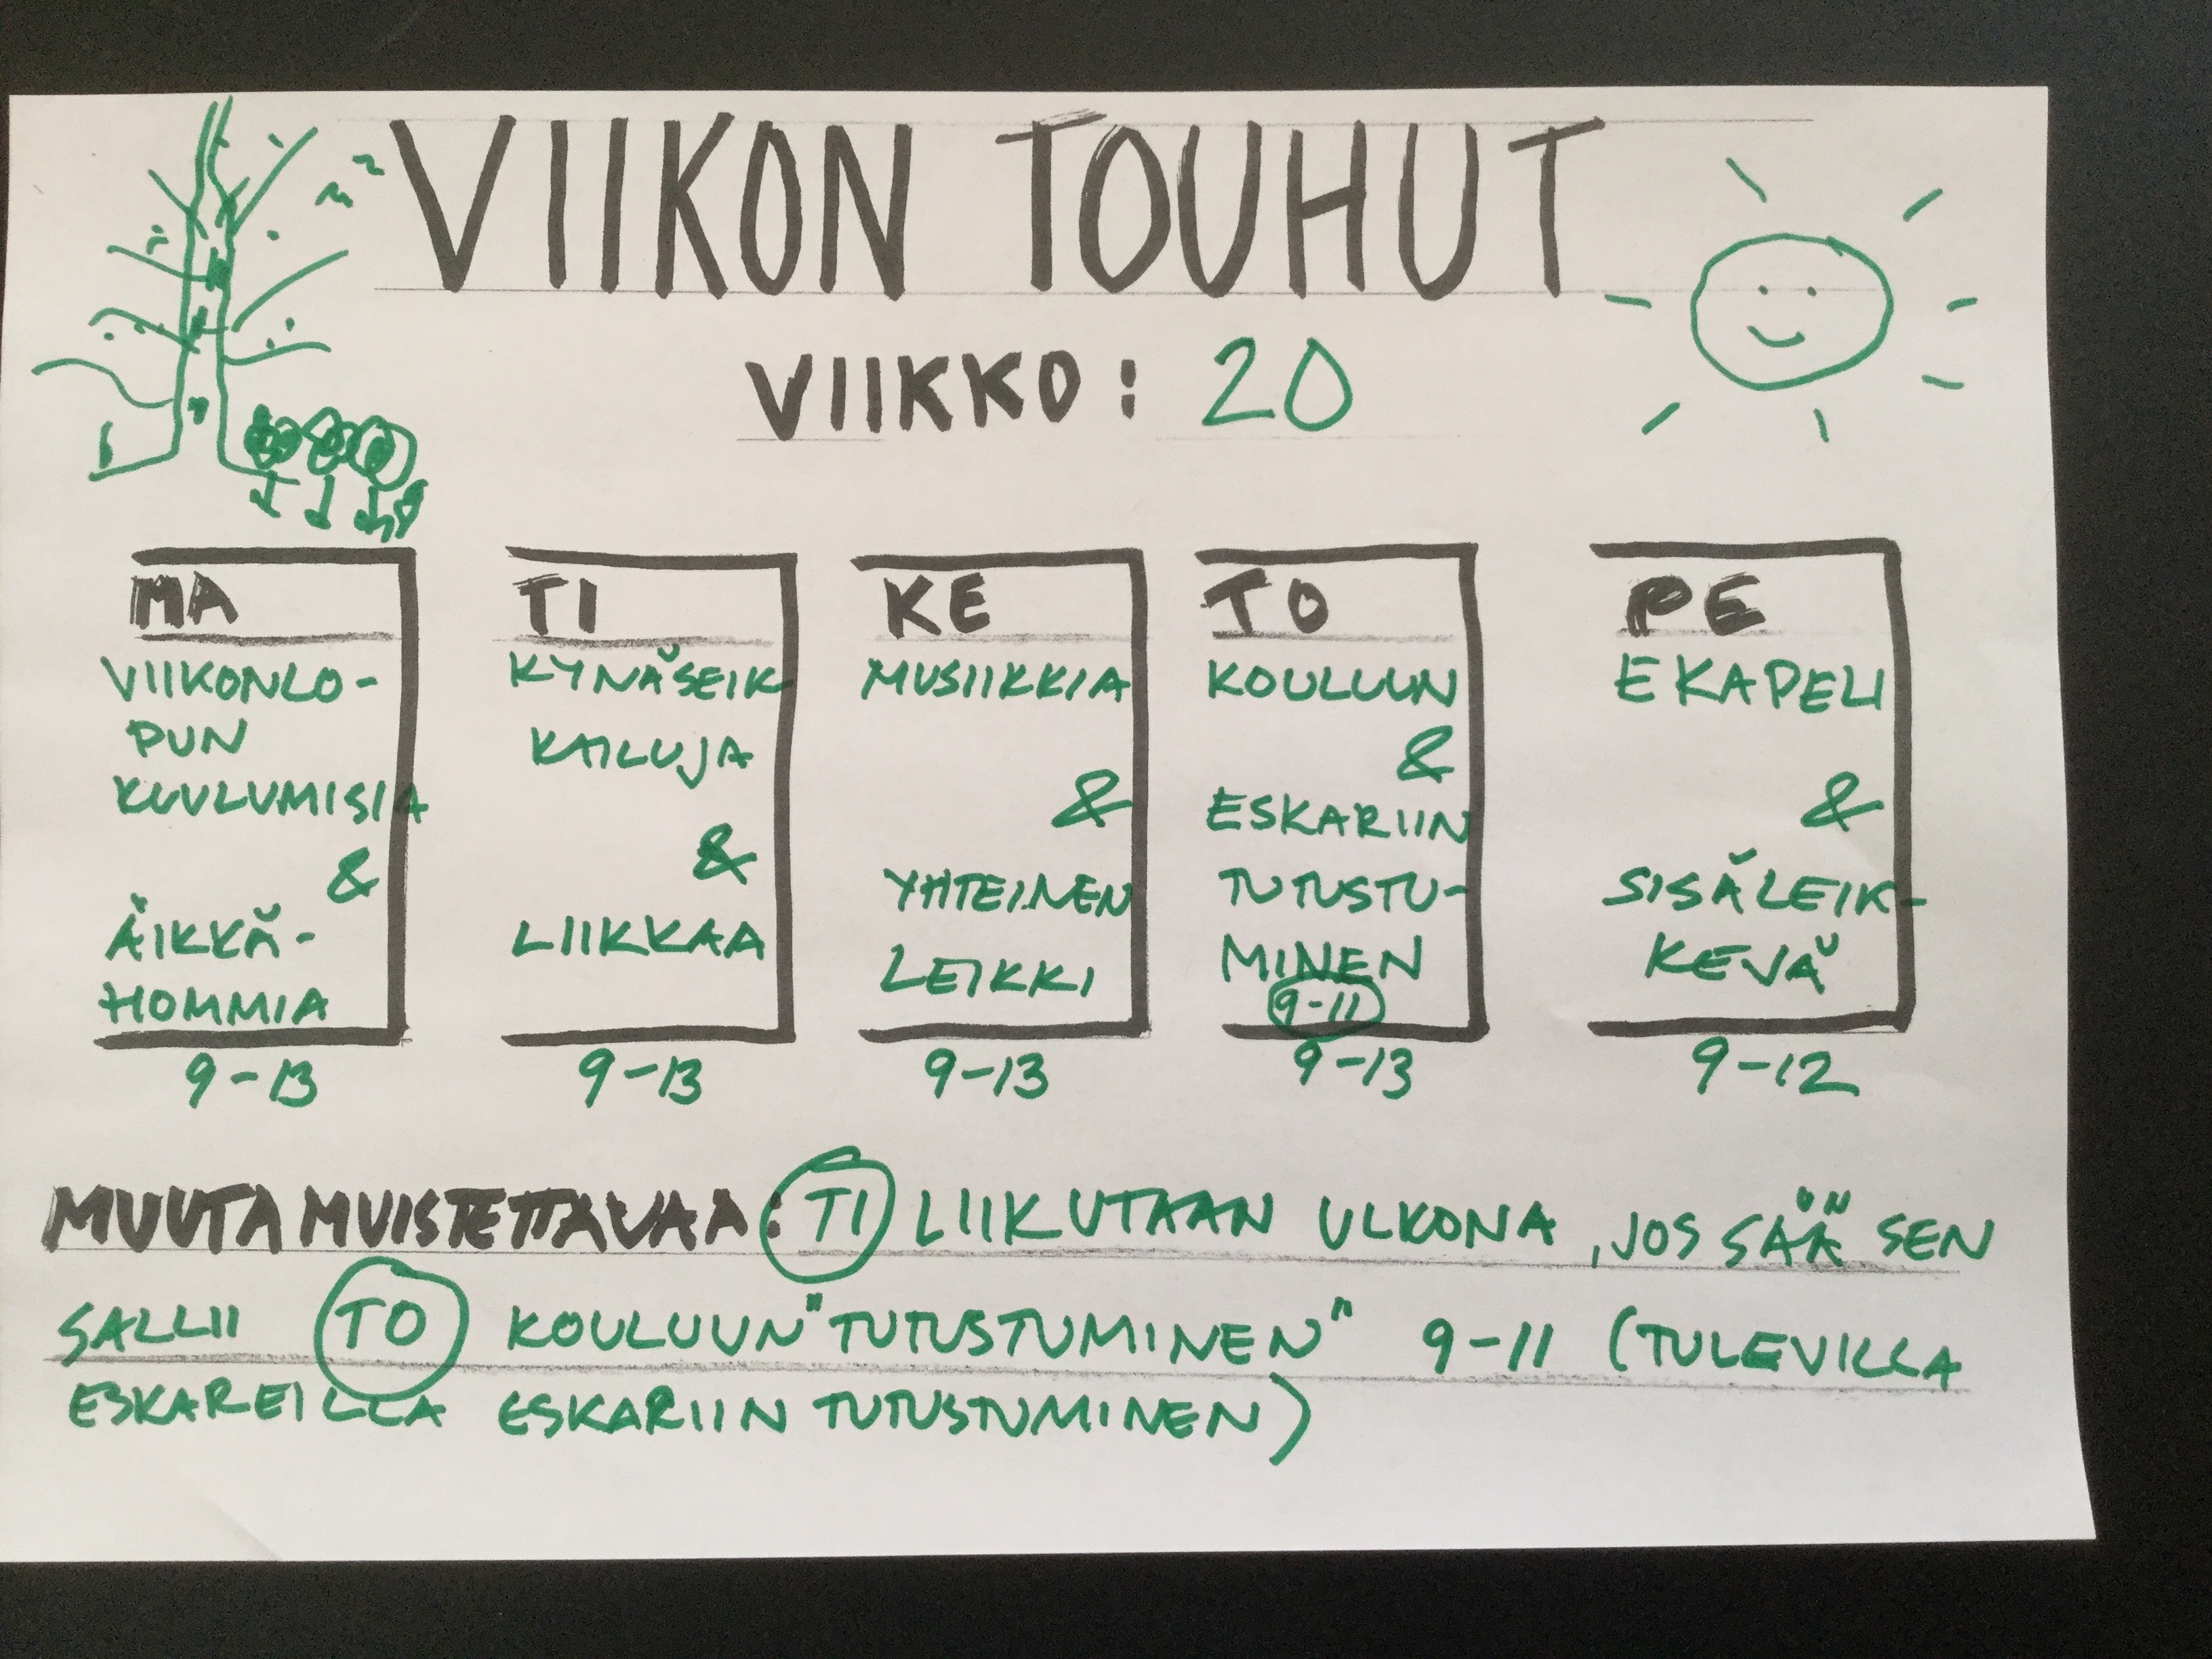 VIIKON TOUHUT
VIIKKO: 20
MA
VIIKONLO-
PUN
KUULUMISIA
&
ÄIKKÄ-
HOMMIA
9-13
TI
KYNÄSEIK
KAILUJA
&
LIIKKAA
9-13
KE
MUSIIKKIA
&
YHTEINEN
LEIKKI
9-13
TO
KOULUUN
&
ESKARIIN
TUTUSTU-
MINEN
9-11
9-13
PE
EKAPELI
&
SISÄLEIK-
KEVÄ
9-12
MUUTA MUISTETTAVAA: TI LIIKUTAAN ULKONA, JOS SÄÄ SEN
SALLII TO KOULUUN "TUTUSTUMINEN" 9-11 (TULEVILLA
ESKAREILLA ESKARIIN TUTUSTUMINEN)